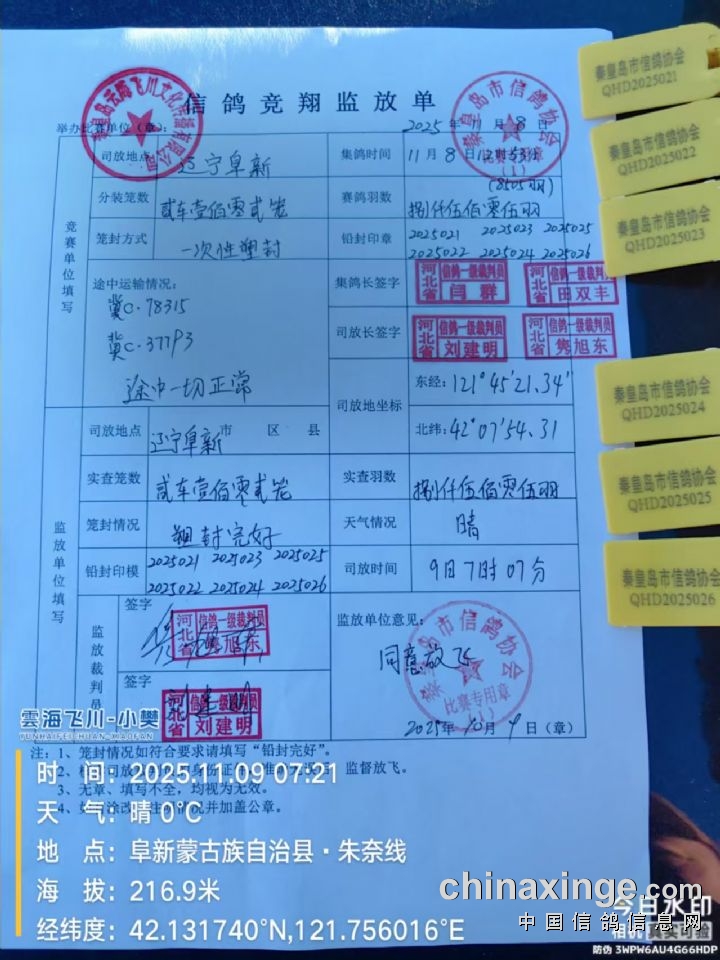 信鸽竞翔监放单
举办比赛单位（章）：
2025年11月8日
竞赛单位填写
司放地点
辽宁阜新
集鸽时间
11月8日12时53分
分装笼数
贰车壹佰零贰笼
赛鸽羽数
(8505羽)
捌仟伍佰零伍羽
笼封方式
一次性塑封
铅封印章
2025021 2025023 2025025
2025022 2025024 2025026
途中运输情况：
冀C·78315
冀C·377P3
途中一切正常
集鸽长签字
河北省 信鸽一级裁判员 闫群
河北省 信鸽一级裁判员 田双丰
司放长签字
河北省 信鸽一级裁判员 刘建明
河北省 信鸽一级裁判员 隽旭东
司放地坐标
东经：121°45'21.34"
北纬：42°07'54.31
监放单位填写
司放地点
辽宁阜新市 区 县
实查笼数
贰车壹佰零贰笼
实查羽数
捌仟伍佰零伍羽
笼封情况
塑封完好
天气情况
晴
铅封印模
2025021 2025023 2025025
2025022 2025024 2025026
司放时间
9日7时07分
监放裁判员
签字
河北省 信鸽一级裁判员 隽旭东
签字
河北省 信鸽一级裁判员 刘建明
监放单位意见：
同意放飞
秦皇岛市信鸽协会
比赛专用章
2025年10月9日（章）
注：1、笼封情况如符合要求请填写“铅封完好”。
监督放飞。
3、无章、填写不全，均视为无效。
秦皇岛市信鸽协会
QHD2025021
秦皇岛市信鸽协会
QHD2025022
秦皇岛市信鸽协会
QHD2025023
秦皇岛市信鸽协会
QHD2025024
秦皇岛市信鸽协会
QHD2025025
秦皇岛市信鸽协会
QHD2025026
雲海飞川-小樊
YUNHAIFEICHUAN-XIAOFAN
时 间：2025.11.09 07:21
天 气：晴 0℃
地 点：阜新蒙古族自治县·朱奈线
海 拔：216.9米
经纬度：42.131740°N,121.756016°E
chinaxinge.com
中国信鸽信息网
今日水印
相机 真实时间
防伪 3WPW6AU4G66HDP